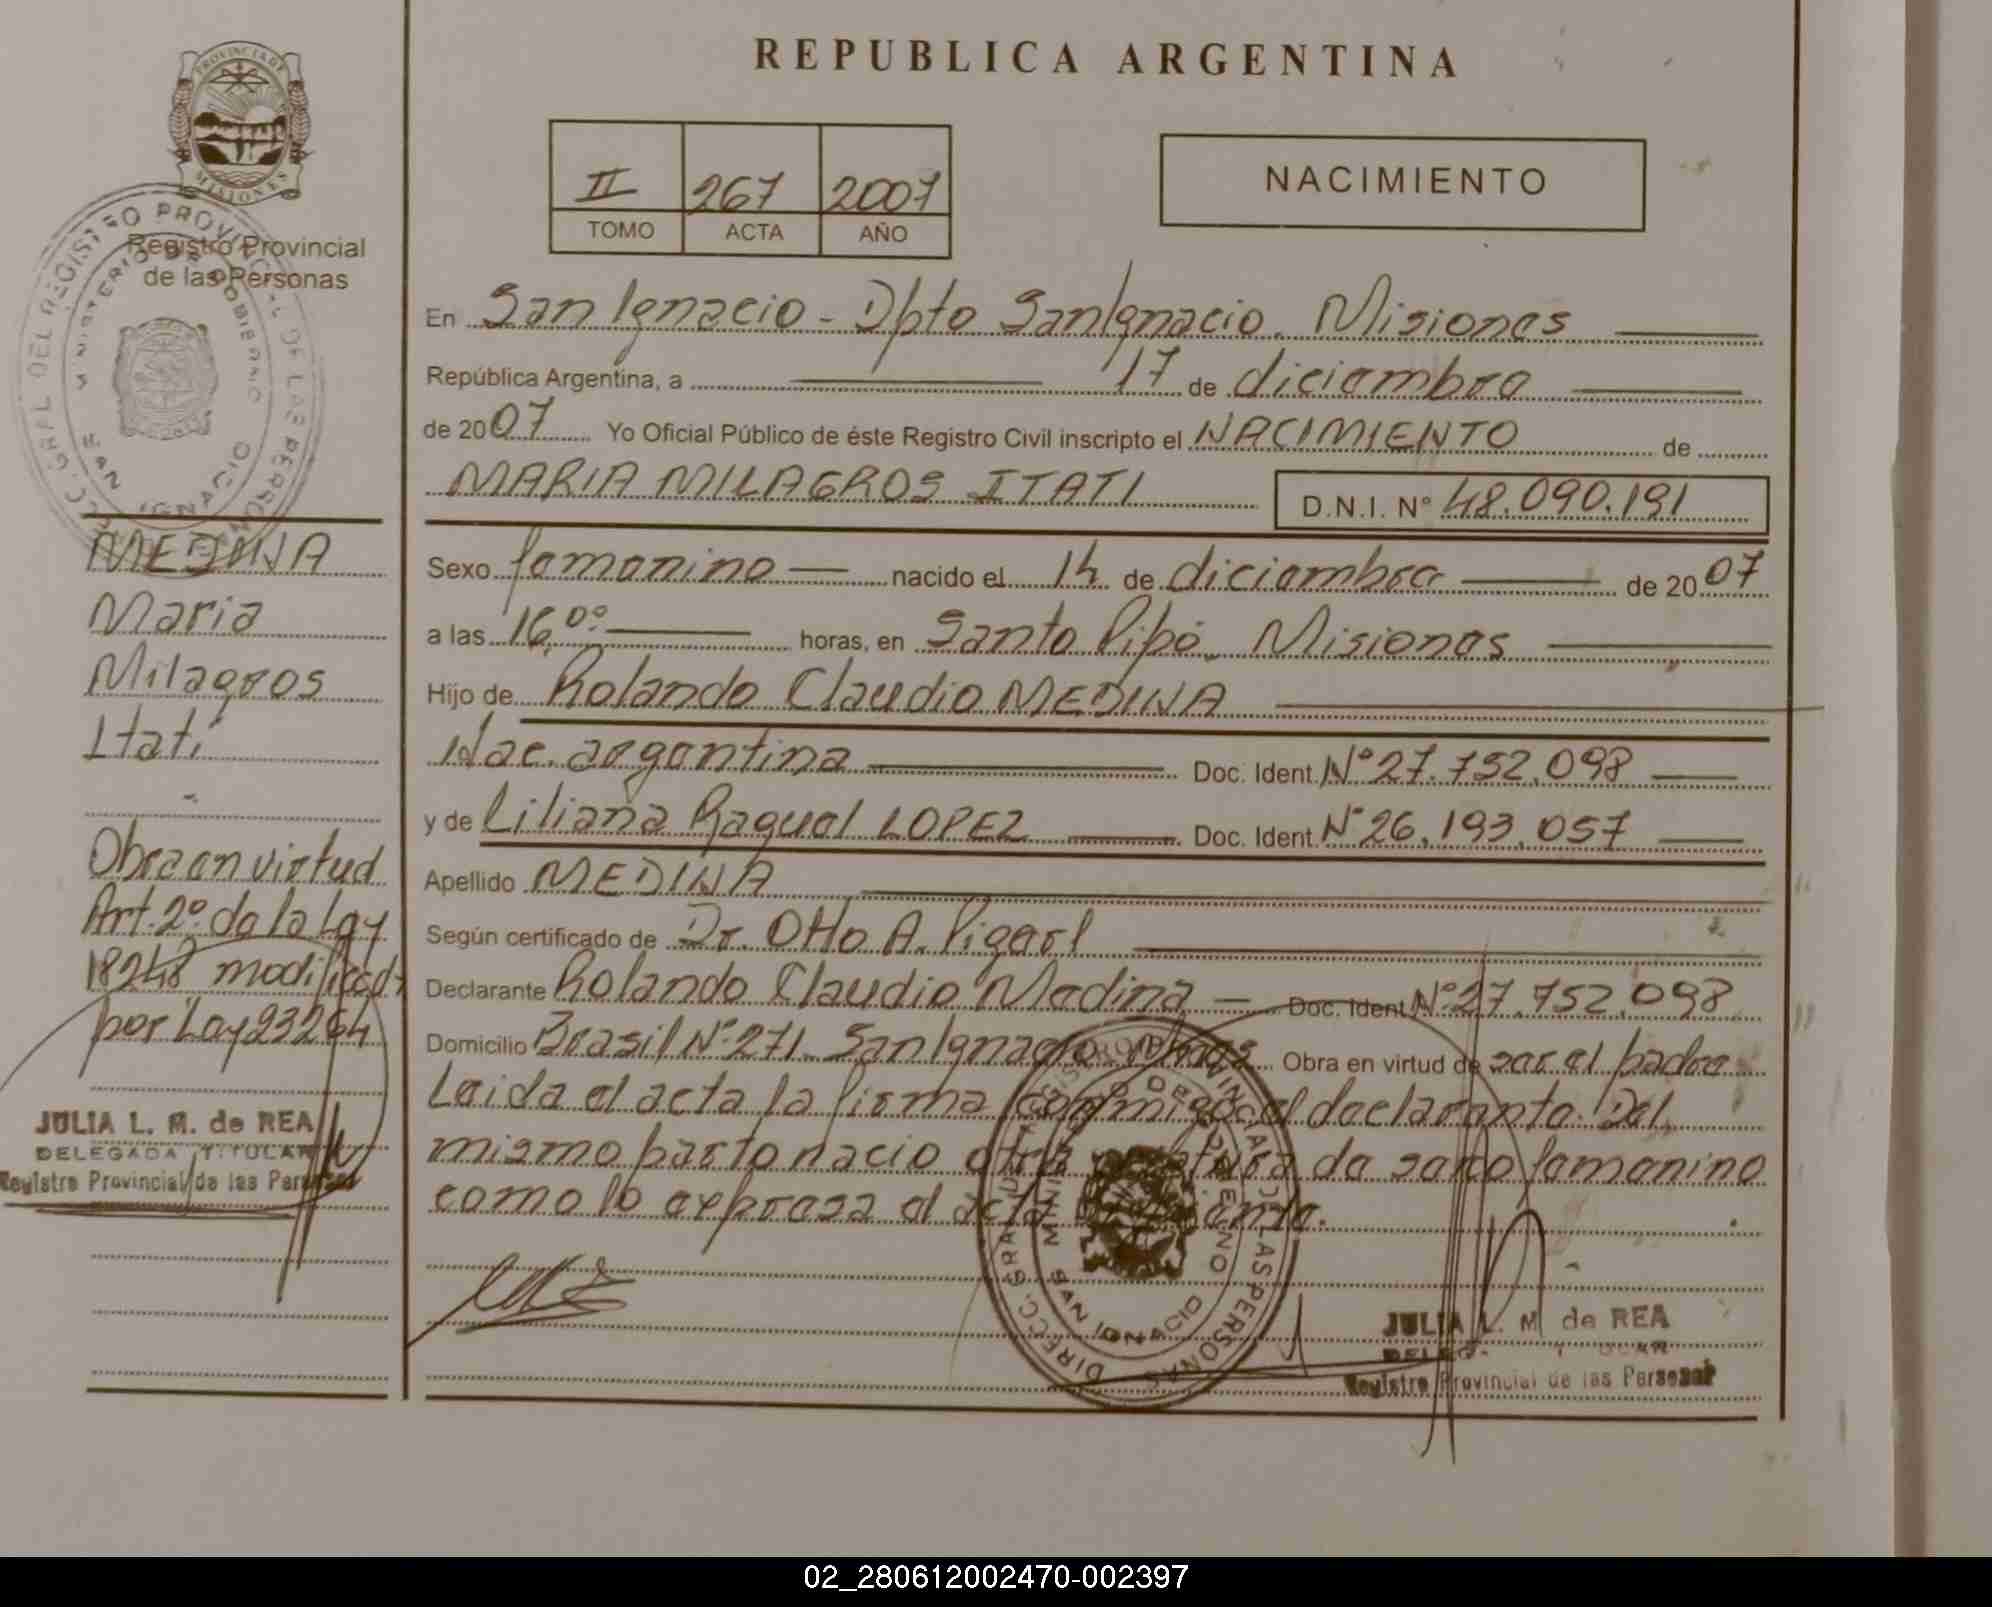 REPUBLICA ARGENTINA
PROVINCIA DE
MISIONES
Registro Provincial
de las Personas
II 267 2007
TOMO ACTA AÑO
NACIMIENTO
En San Ignacio - Dpto San Ignacio. Misiones
República Argentina, a 17 de diciembre
de 2007 Yo Oficial Público de éste Registro Civil inscripto el NACIMIENTO de
MARIA MILAGROS ITATI D.N.I. Nº 48.090.191
Sexo femenino nacido el 14 de diciembre de 2007
a las 16,00 horas, en Santo Pipó. Misiones
Hijo de Rolando Claudio MEDINA
Nac. argentina Doc. Ident. Nº 27.752.098
y de Liliana Raquel LOPEZ Doc. Ident. Nº 26.193.057
Apellido MEDINA
Según certificado de Dr. Otto A.
Declarante Rolando Claudio Medina Doc. Ident. Nº 27.752.098
Domicilio Brasil Nº 271. San Ignacio Mnes Obra en virtud de ser el padre
Leida el acta la firma conmigo el declarante. Del
mismo parto nacio otra criatura de sexo femenino
como lo expresa el acta
JULIA L. M. de REA
Registro Provincial de las Personas
DIRECC. GRAL. DEL REGISTRO PROVINCIAL DE LAS PERSONAS
MINISTERIO DE GOBIERNO
SAN IGNACIO
MEDINA
Maria
Milagros
Itatí
Obra en virtud
Art. 2º de la Ley
18248 modificada
por Ley 23264
JULIA L. M. de REA
DELEGADA TITULAR
Registro Provincial de las Personas
DIRECC. GRAL DEL REGISTRO PROVINCIAL DE LAS PERSONAS
MINISTERIO DE GOBIERNO
SAN IGNACIO
02_280612002470-002397